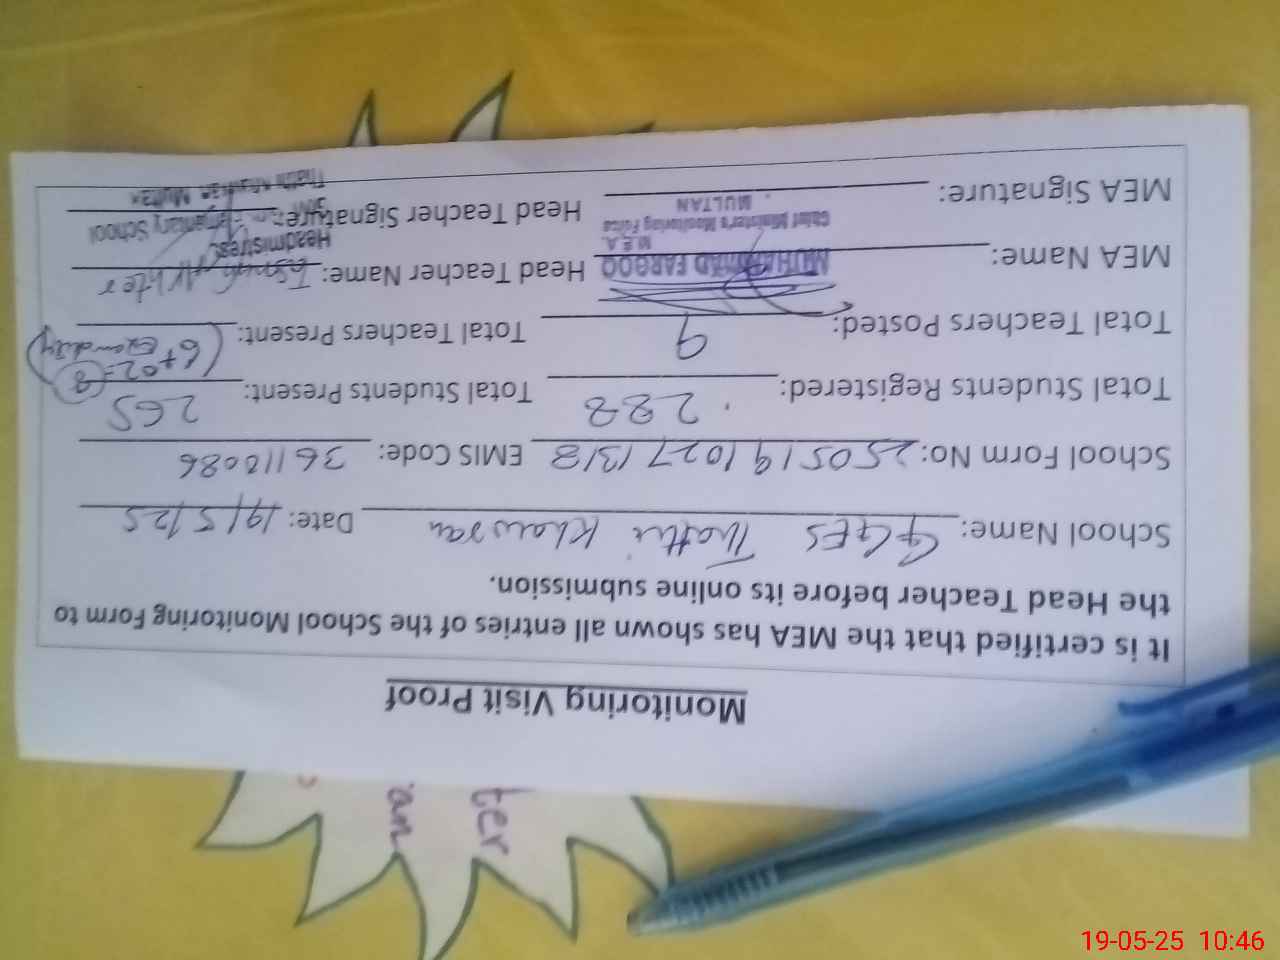 Monitoring Visit Proof
It is certified that the MEA has shown all entries of the School Monitoring Form to
the Head Teacher before its online submission.
School Name: GGES Thatti Khawran Date: 19/5/25
School Form No: 25051910271318 EMIS Code: 36110086
Total Students Registered: 288 Total Students Present: 265
Total Teachers Posted: 9 Total Teachers Present: (6+02=8
Exam duty)
MEA Name: MUHAMMAD FAROOQ Head Teacher Name: Akhter
M.E.A. Headmistress
Chief Minister's Monitoring Force
MEA Signature: MULTAN Head Teacher Signature: Elementary School
Thatti Multan
ter
an
19-05-25 10:46